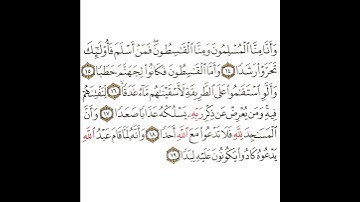 وَأَنَّا مِنَّا ٱلْمُسْلِمُونَ وَمِنَّا ٱلْقَـٰسِطُونَ ۖ فَمَنْ أَسْلَمَ فَأُو۟لَـٰٓئِكَ
تَحَرَّوْا۟ رَشَدًا ١٤ وَأَمَّا ٱلْقَـٰسِطُونَ فَكَانُوا۟ لِجَهَنَّمَ حَطَبًا
١٥ وَأَلَّوِ ٱسْتَقَـٰمُوا۟ عَلَى ٱلطَّرِيقَةِ لَأَسْقَيْنَـٰهُم مَّآءً غَدَقًا ١٦ لِّنَفْتِنَهُمْ
فِيهِ ۚ وَمَن يُعْرِضْ عَن ذِكْرِ رَبِّهِۦ يَسْلُكْهُ عَذَابًا صَعَدًا ١٧ وَأَنَّ
ٱلْمَسَـٰجِدَ لِلَّهِ فَلَا تَدْعُوا۟ مَعَ ٱللَّهِ أَحَدًا ١٨ وَأَنَّهُۥ لَمَّا قَامَ عَبْدُ ٱللَّهِ
يَدْعُوهُ كَادُوا۟ يَكُونُونَ عَلَيْهِ لِبَدًا ١٩